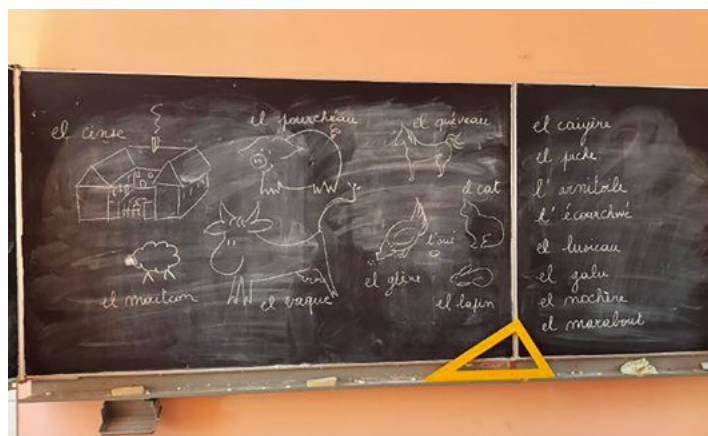 el cinse
el pourcheau
el quéveau
el cat
l'oué
el glène
el mouton
el vaque
el lapin
el caiyère
el puche
l'arnitoile
l'écourcheu
el lusieau
el galu
el mochère
el marabout